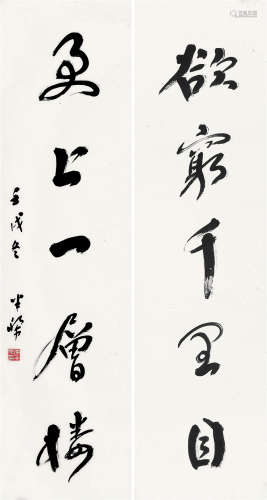 欲窮千里目
更上一層楼
壬戌冬